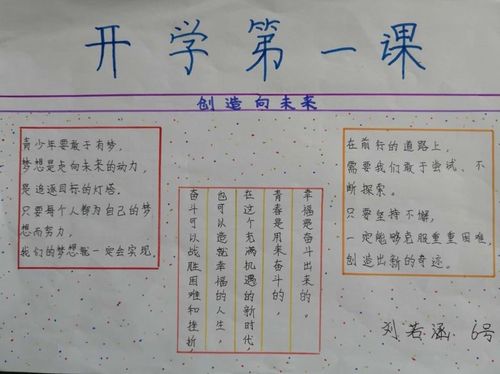 开学第一课
创造向未来
青少年要敢于有梦，
梦想是走向未来的动力，
是追逐目标的灯塔。
只要每个人都为自己的梦
想而努力，
我们的梦想就一定会实现。
幸福是奋斗出来的。
青春是用来奋斗的，
在这个充满机遇的新时代，
也可以造就幸福的人生，
奋斗可以战胜困难和挫折，
在前行的道路上，
需要我们敢于尝试、不
断探索。
只要坚持不懈，
一定能够克服重重困难，
创造出新的奇迹。
刘若涵 6号